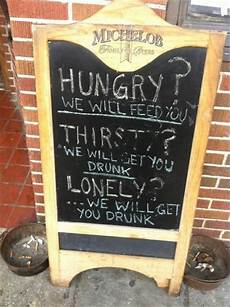 MICHELOB
FAMILY of BEERS
HUNGRY?
WE WILL FEED YOU
THIRSTY?
WE WILL GET YOU
DRUNK
LONELY?
... WE WILL GET
YOU DRUNK